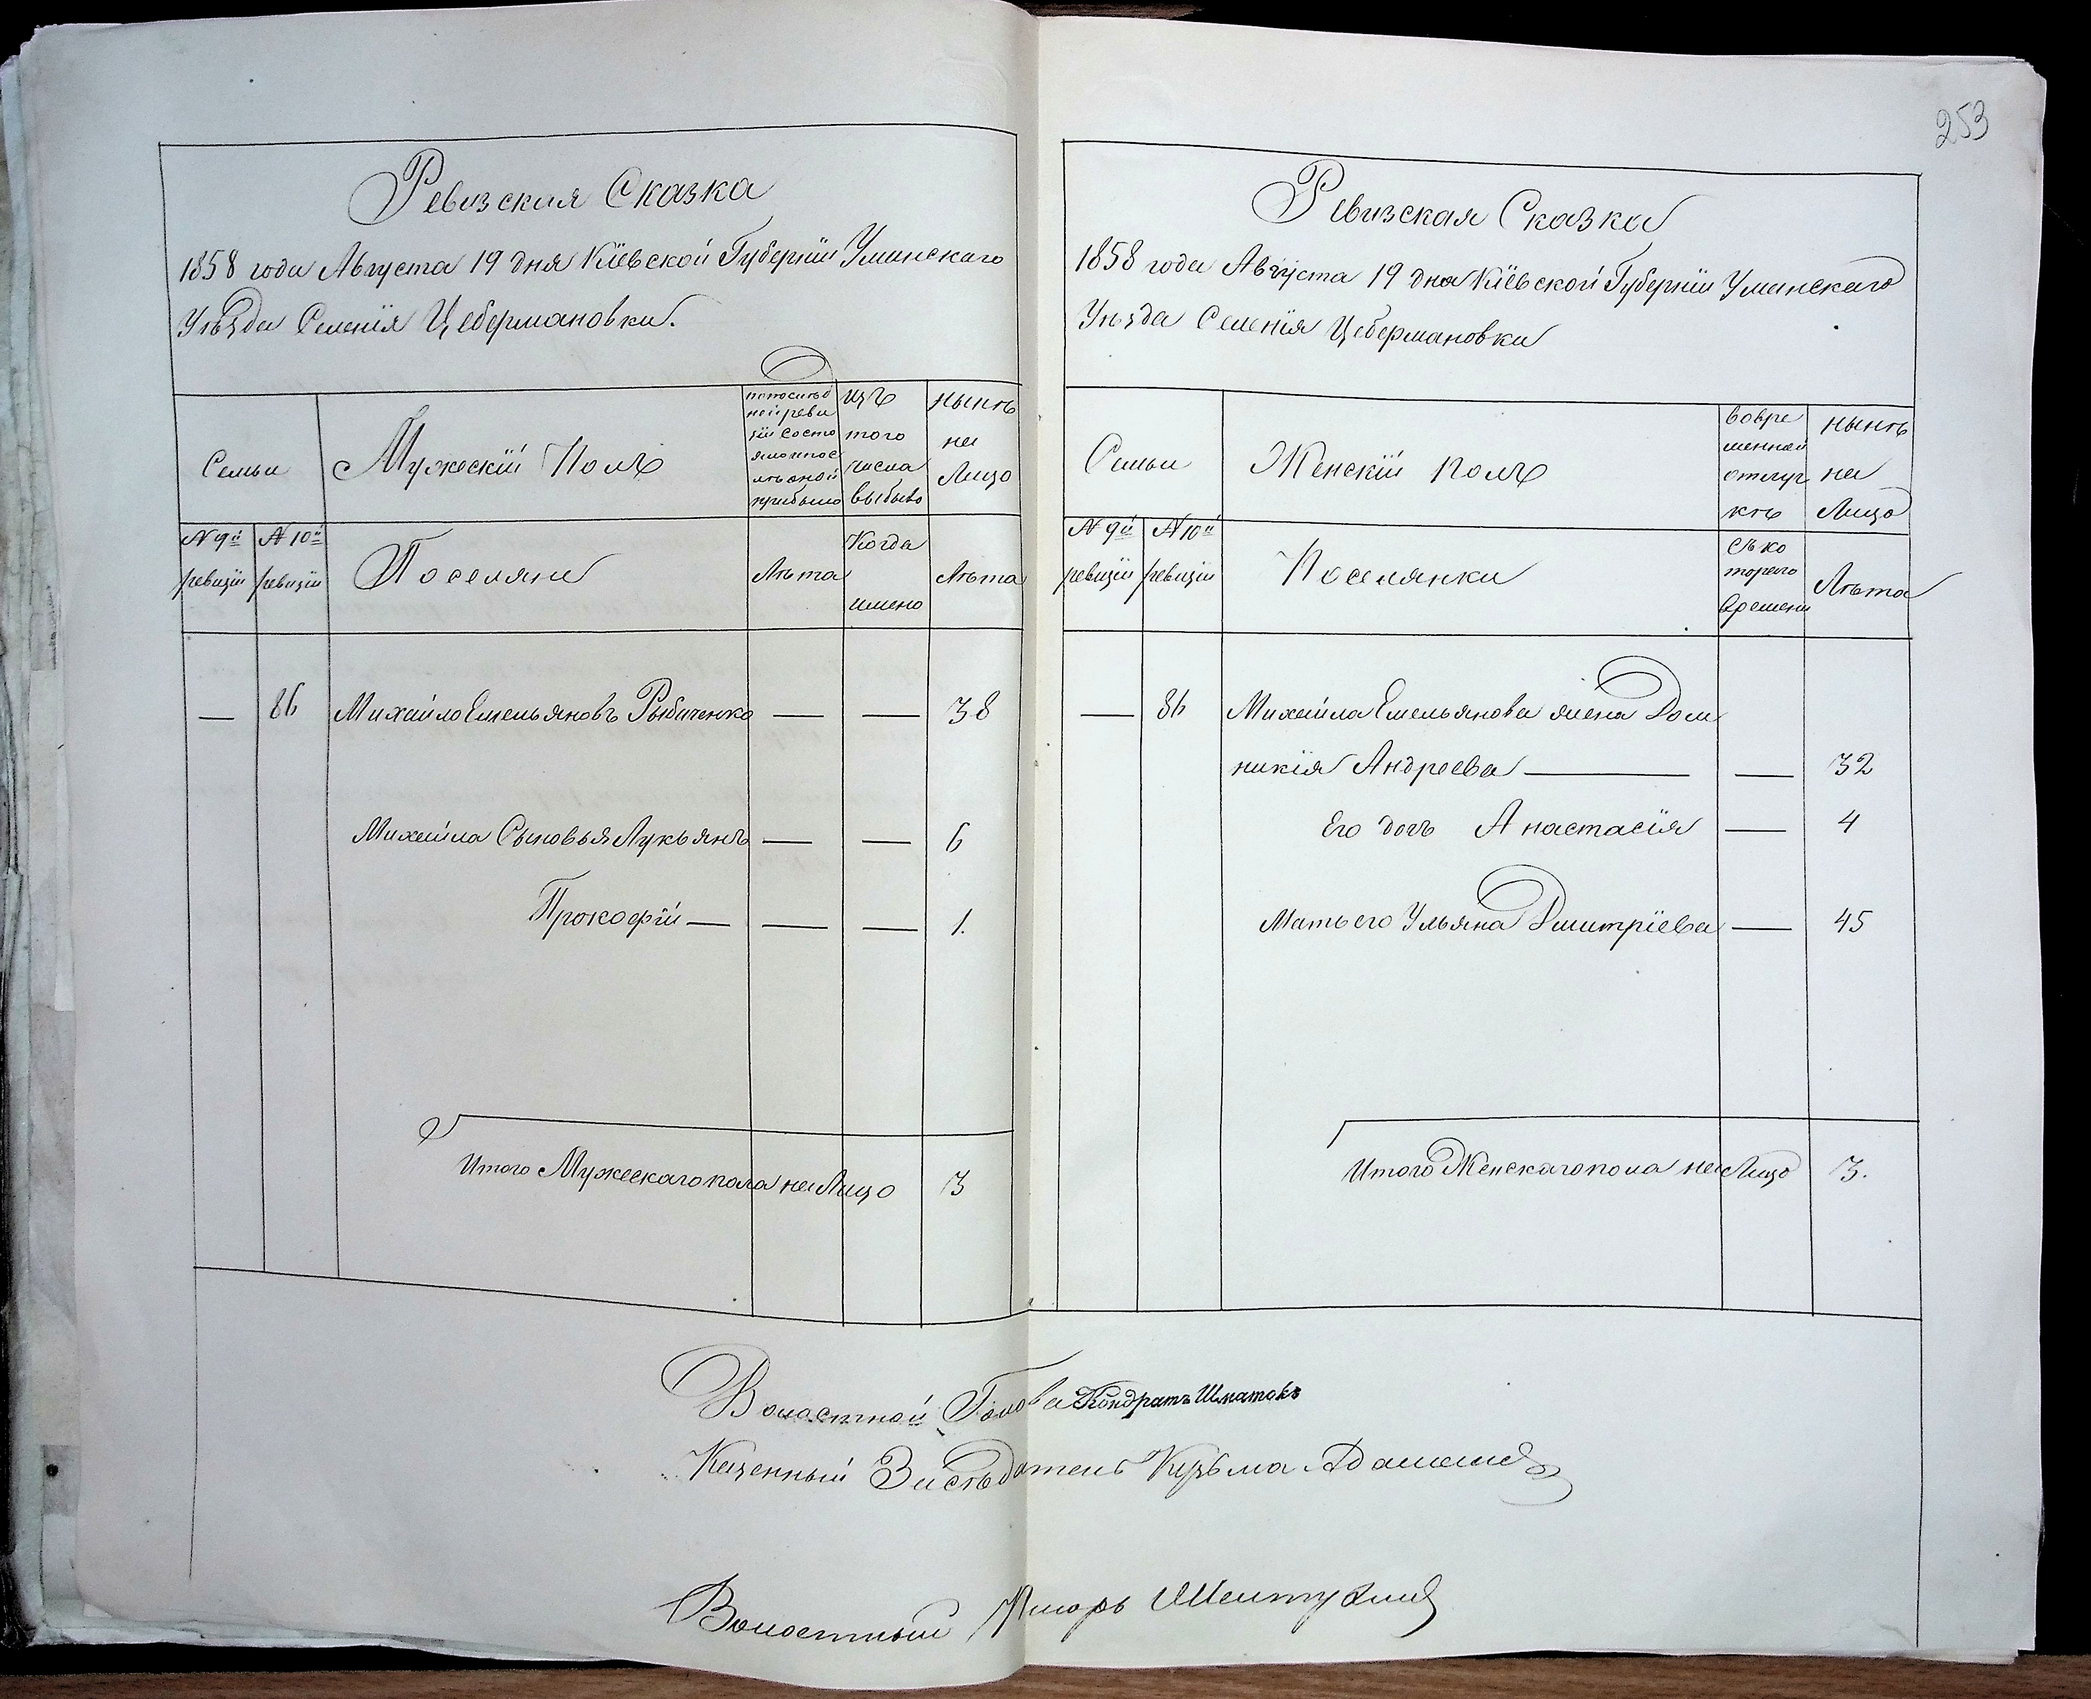 253
Ревизская Сказка
1858 года Августа 19 дня Кіевской Губерніи Уманскаго
Уѣзда Селенія Цебермановки.
Семьи
Мужескій Полъ
изъ
того
числа
выбыло
нынѣ
на
Лицо
№ 9й
ревизіи
№ 10й
ревизіи
Поселяне
Лѣта
Когда
имено
Лѣта
— 86 Михайло Емельяновъ Рыбиченко — — 38
Михайла Сыновья Лукьянъ — — 6
Прокофій — — — 1.
Итого Мужескаго пола на Лицо 3
Ревизская Сказка
1858 года Августа 19 дня Кіевской Губерніи Уманскаго
Уѣзда Селенія Цебермановки
Семьи
Женскій полъ
вовре
менной
отлуч
кѣ
нынѣ
на
Лицо
№ 9й
ревизіи
№ 10й
ревизіи
Поселянки
съ ко
тораго
времени
Лѣта
— 86 Михайла Емельянова жена Дом
никія Андреева — — 32
Его дочь Анастасія — 4
Мать его Ульяна Дмитріева — 45
Итого Женскаго пола на Лицо 3.
Волостной Голова Кондратъ Шматокъ
Казенный Засѣдатель Кузьма
Волостный Писарь